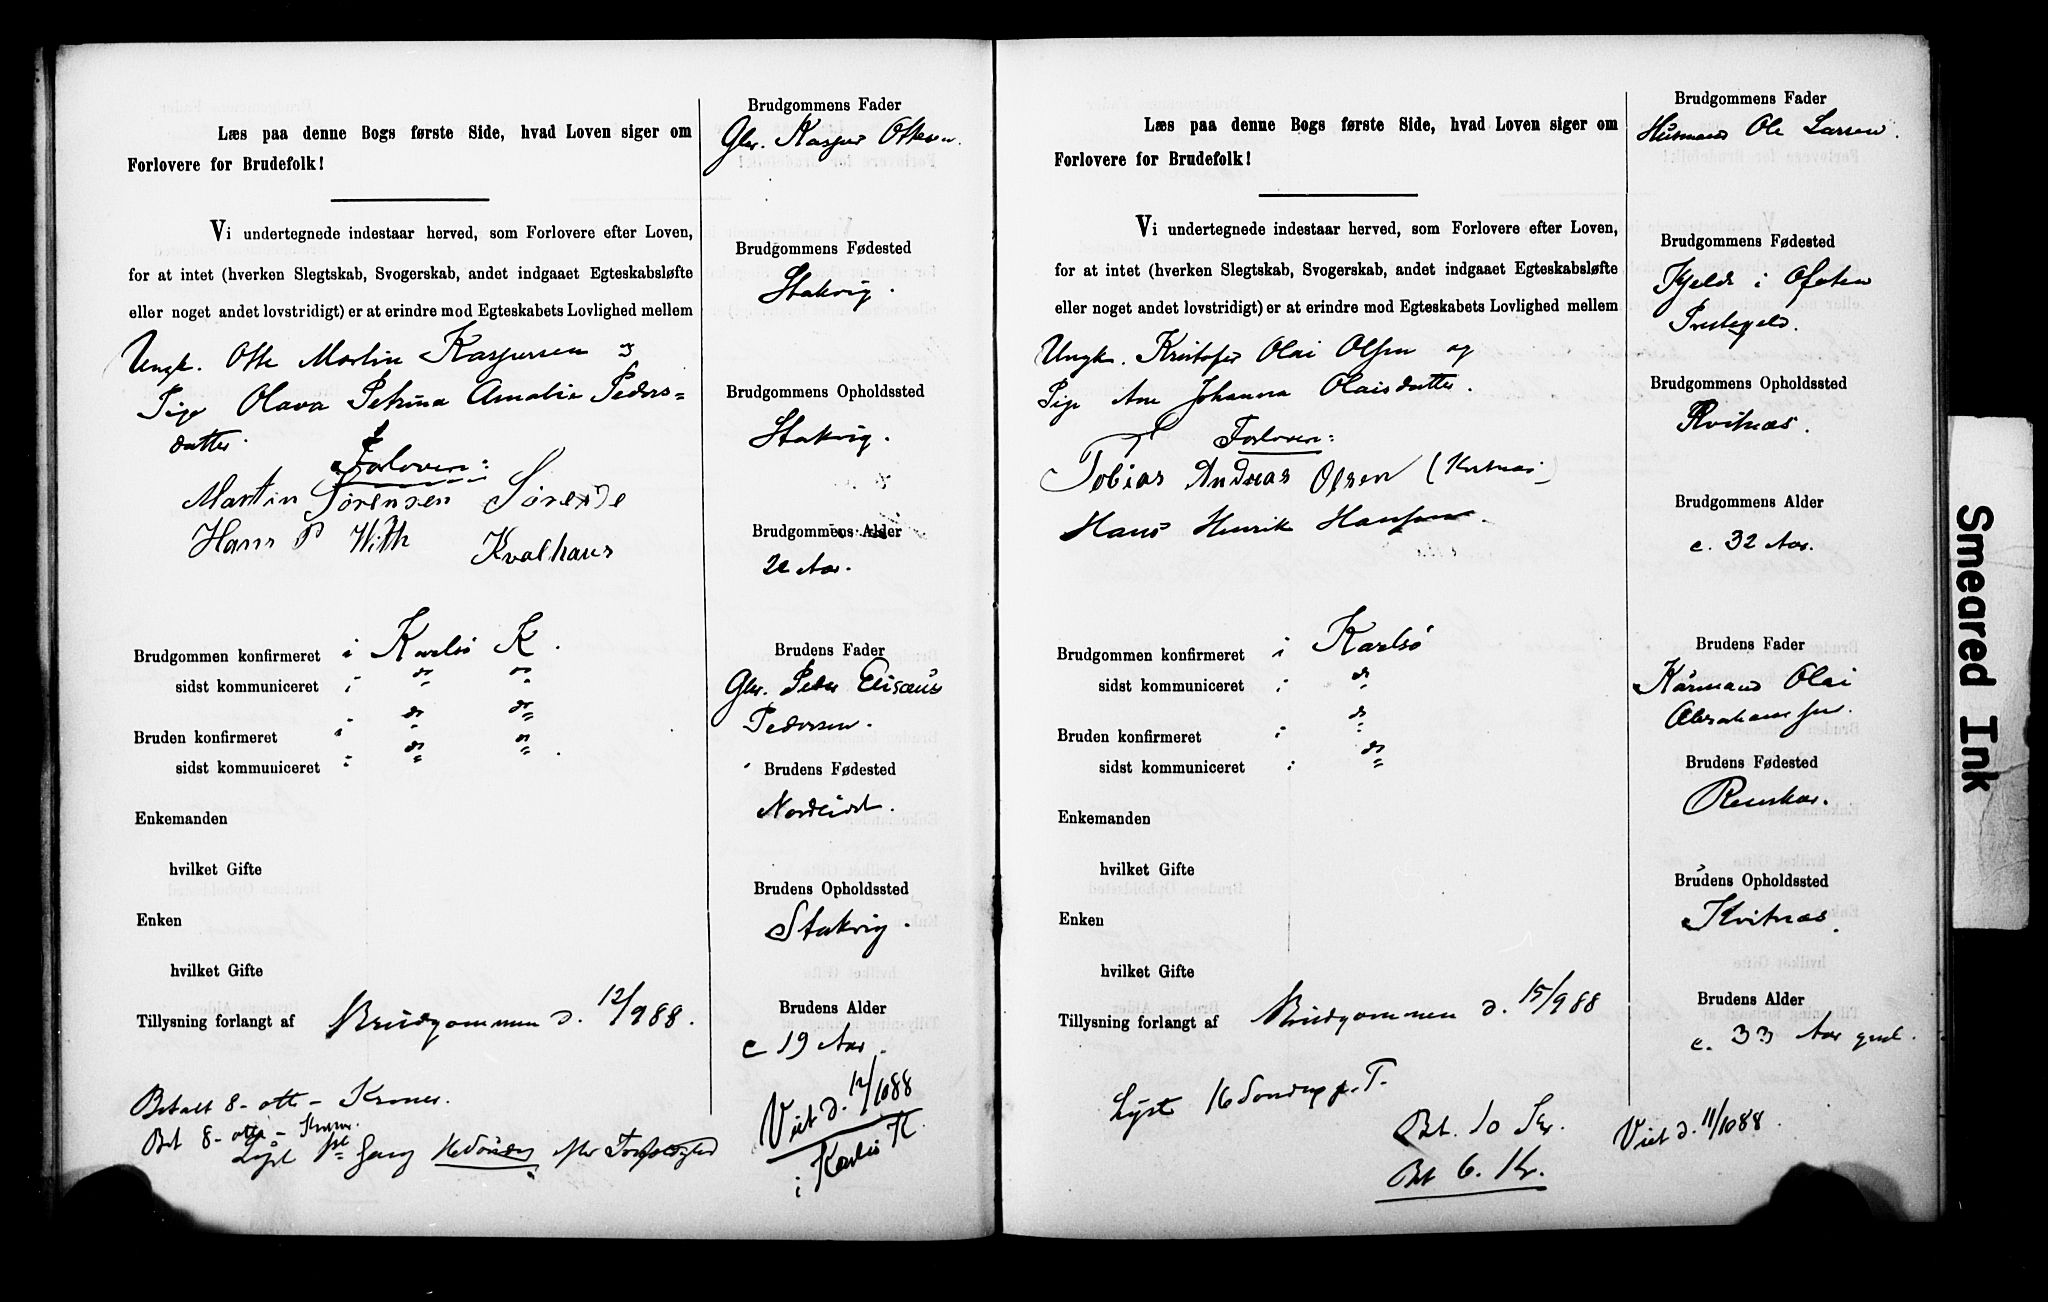 Læs paa denne Bogs første Side, hvad Loven siger om
Forlovere for Brudefolk!
Vi undertegnede indestaar herved, som Forlovere efter Loven,
for at intet (hverken Slegtskab, Svogerskab, andet indgaaet Egteskabsløfte
eller noget andet lovstridigt) er at erindre mod Egteskabets Lovlighed mellem
Ungk. Otto Martin Kaspersen og
Pige Olava Petrina Amalie Peders-
datter.
Forlovere:
Martin Sørensen
Hans P With Kvalhaus
Brudgommen konfirmeret i Karlsö K.
sidst kommuniceret i do do
Bruden konfirmeret i do do
sidst kommuniceret i do do.
Enkemanden
hvilket Gifte
Enken
hvilket Gifte
Tillysning forlangt af Brudgommen d. 12/988.
Betalt 8 - otte - Kroner.
Bet 8 - otte - Kroner.
Lyst 1ste Gang
Brudgommens Fader
Gbr. Kasper Ottesen.
Brudgommens Fødested
Stakvig.
Brudgommens Opholdssted
Stakvig.
Brudgommens Alder
Aar.
Brudens Fader
Gbr. Peder Elisæus
Pedersen.
Brudens Fødested
Nordeidet.
Brudens Opholdssted
Stakvig.
Brudens Alder
c 19 Aar.
Viet d. 12/1088
i Karlsö K.
Læs paa denne Bogs første Side, hvad Loven siger om
Forlovere for Brudefolk!
Vi undertegnede indestaar herved, som Forlovere efter Loven,
for at intet (hverken Slegtskab, Svogerskab, andet indgaaet Egteskabsløfte
eller noget andet lovstridigt) er at erindre mod Egteskabets Lovlighed mellem
Ungk. Kristofer Olai Olsen og
Pige Ane Johanna Olaisdatter.
Forlovere:
Tobias Andreas Olsen (Kvitnæs)
Hans Henrik Hansen.
Brudgommen konfirmeret i Karlsö
sidst kommuniceret i do
Bruden konfirmeret i do
sidst kommuniceret i do
Enkemanden
hvilket Gifte
Enken
hvilket Gifte
Tillysning forlangt af Brudgommen d. 15/988
Lyst 16
Bet. 10 Kr.
Bet 6. Kr.
Brudgommens Fader
Husmand Ole Larsen.
Brudgommens Fødested
Kjelde i Ofoten
Prestegeld.
Brudgommens Opholdssted
Kvitnæs.
Brudgommens Alder
c. 32 Aar.
Brudens Fader
Kårmand Olai
Abrahamsen.
Brudens Fødested
Brudens Opholdssted
Kvitnæs.
Brudens Alder
c. 33 Aar gml.
Viet d. 11/1088.
Smeared Ink